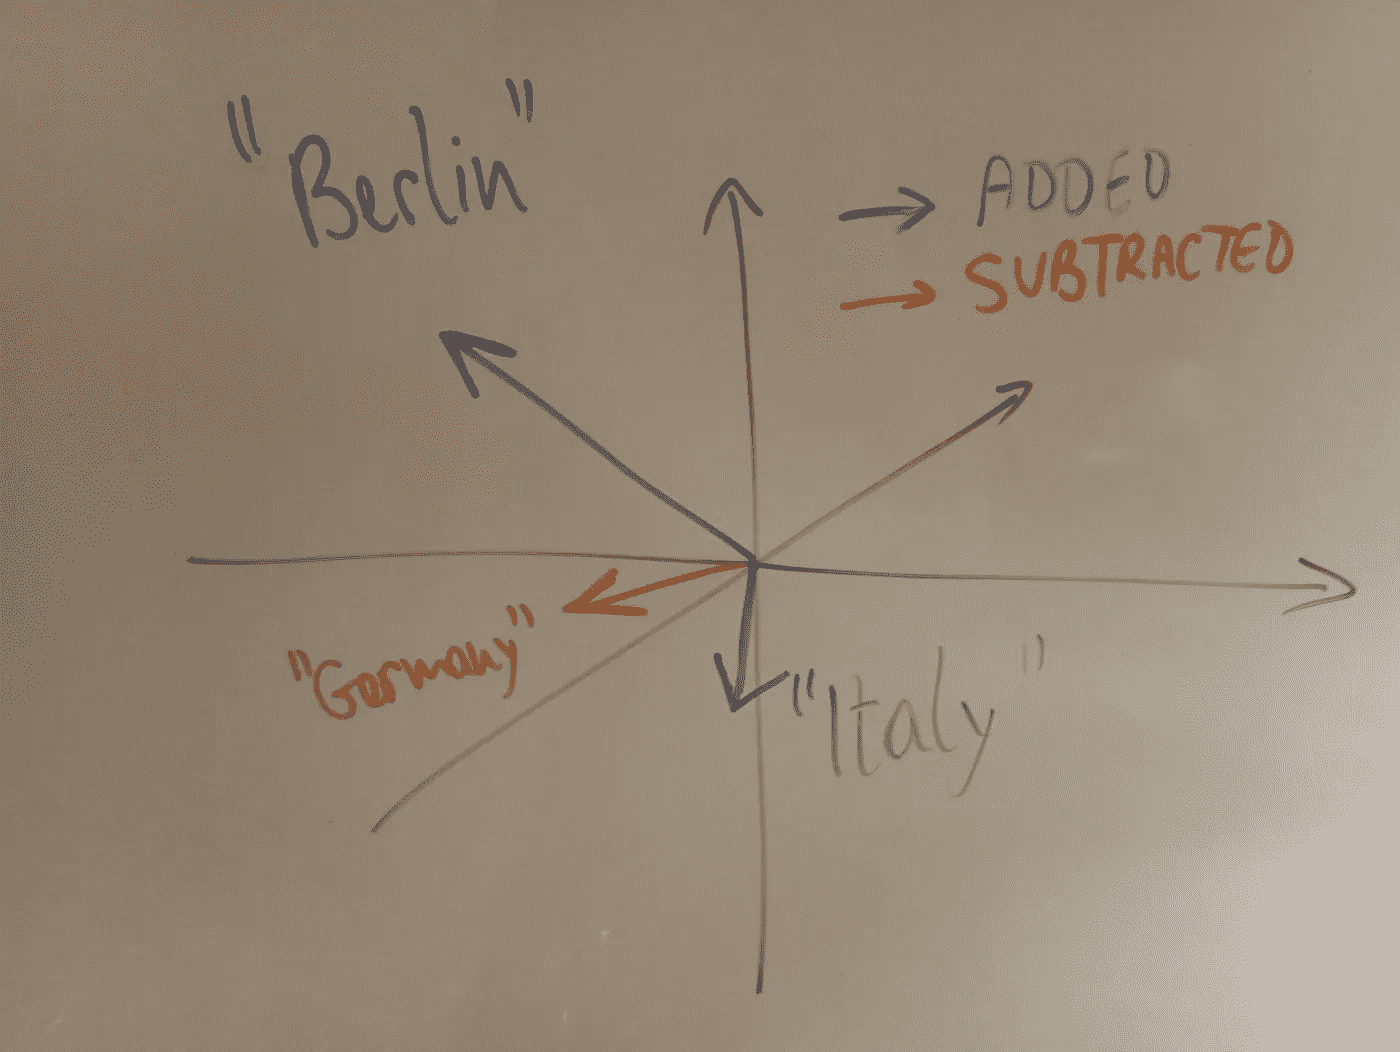 "Berlin"
ADDED
SUBTRACTED
"Germany"
"Italy"